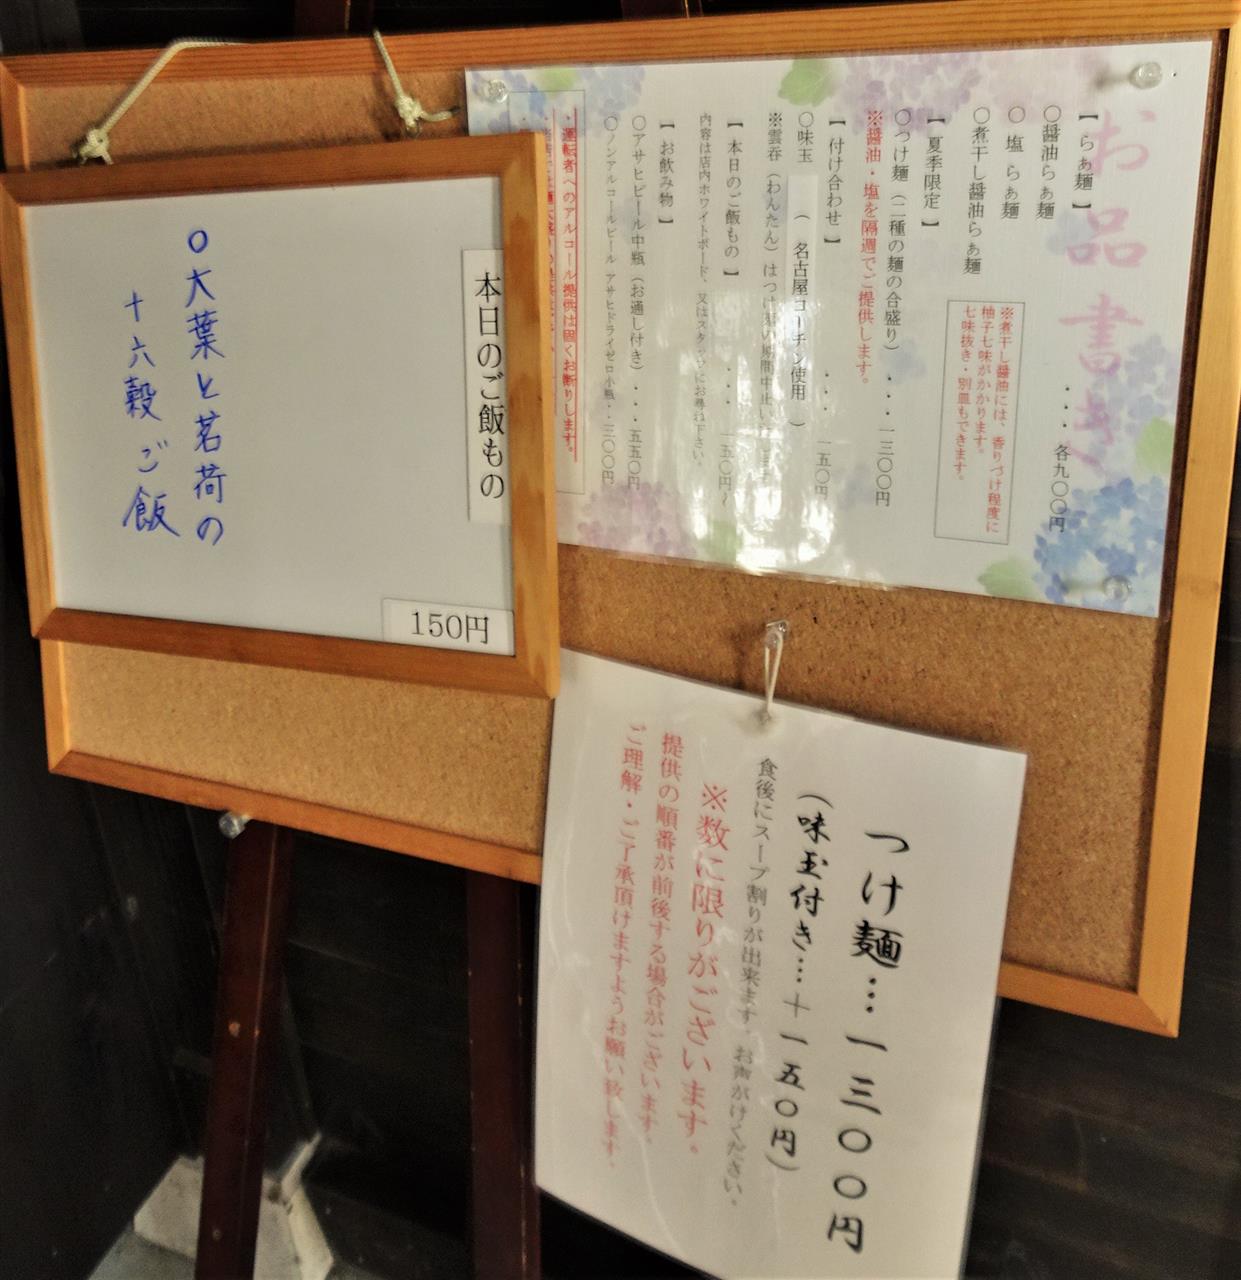 お品書き
【らぁ麺】
〇醤油らぁ麺
〇 塩 らぁ麺 ・・・各九〇〇円
〇煮干し醤油らぁ麺
※煮干し醤油には、香りづけ程度に
柚子七味がかかります。
七味抜き・別皿もできます。
【夏季限定】
〇つけ麺(二種の麺の合盛り)・・・一三〇〇円
※醤油・塩を隔週でご提供します。
【付け合わせ】
〇味玉 (名古屋コーチン使用)・・・一五〇円
※雲呑(わんたん)はつけ麺の期間中止い
【本日のご飯もの】・・・一五〇円〜
内容は店内ホワイトボード、又はスタッフにお尋ね下さい。
【お飲み物】
〇アサヒビール中瓶(お通し付き)・・・五五〇円
〇ノンアルコールビール アサヒドライゼロ小瓶・・三〇〇円
・運転者へのアルコール提供は固くお断りします。
本日のご飯もの
〇大葉と茗荷の
十六穀ご飯
150円
つけ麺…一三〇〇円
(味玉付き…十一五〇円)
食後にスープ割りが出来ます。お声がけください。
※数に限りがございます。
提供の順番が前後する場合がございます。
ご理解・ご了承頂けますようお願い致します。